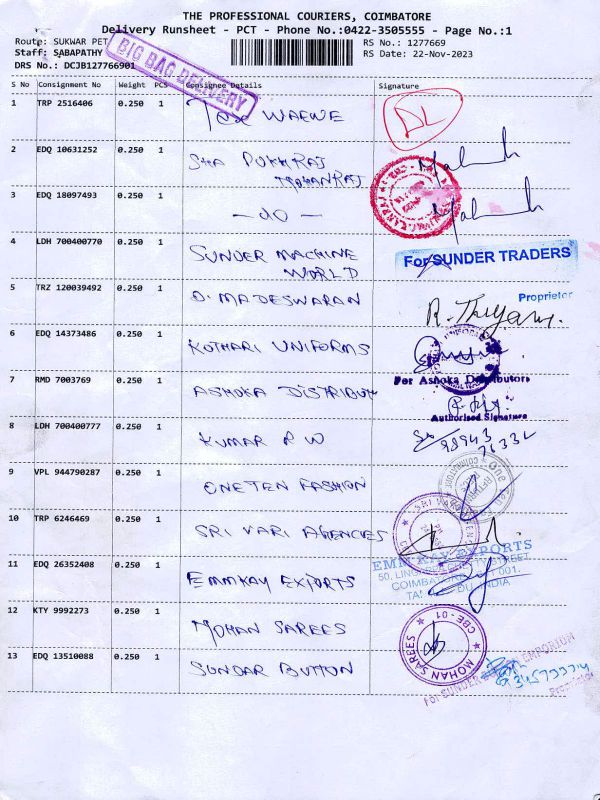 THE PROFESSIONAL COURIERS, COIMBATORE
Delivery Runsheet - PCT - Phone No.:0422-3505555 - Page No.:1
Route: SUKWAR PET
RS No.: 1277669
Staff: SABAPATHY
RS Date: 22-Nov-2023
DRS No.: DCJB127766901
BIG BAG DELIVERY
S No Consignment No Weight PCS Consignee Details Signature
1 TRP 2516406 0.250 1 DL
2 EDQ 10631252 0.250 1 SHA PUKHRAJ
MOHANRAJ
3 EDQ 18097493 0.250 1 -do-
4 LDH 700400770 0.250 1 SUNDER MACHINE
WORLD
For SUNDER TRADERS
Proprietor
5 TRZ 120039492 0.250 1 D. MADESWARAN
6 EDQ 14373486 0.250 1 KOTHARI UNIFORMS
7 RMD 7003769 0.250 1 ASHOKA DISTRIBUT
For Ashoka Distributors
Authorised Signature
8 LDH 700400777 0.250 1 KUMAR R W
9 VPL 944790287 0.250 1 ONE TEN FASHION
10 TRP 6246469 0.250 1 SRI VARI AGENCIES
11 EDQ 26352408 0.250 1 EMMKAY EXPORTS
EMM KAY EXPORTS
12 KTY 9992273 0.250 1 MOHAN SAREES
MOHAN SAREES
CBE - 01
13 EDQ 13510088 0.250 1 SUNDAR BUTTON